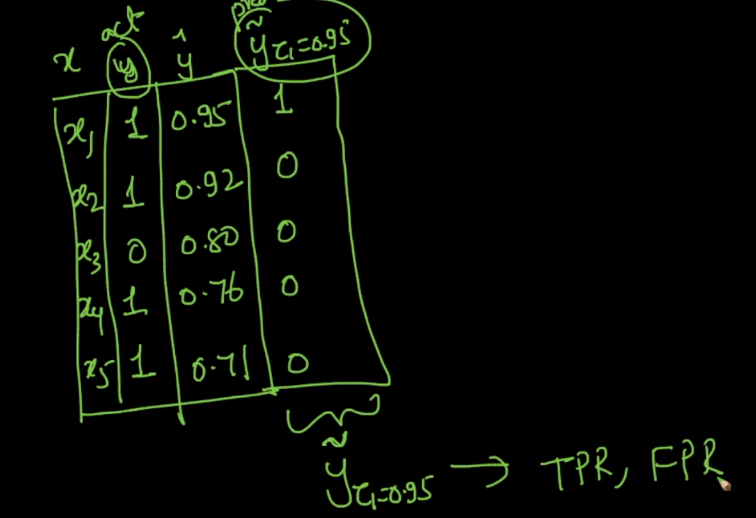 pred
x act y ŷ ỹτ₁=0.95
x₁ 1 0.95 1
x₂ 1 0.92 0
x₃ 0 0.80 0
x₄ 1 0.76 0
x₅ 1 0.71 0
ỹτ₁=0.95 → TPR, FPR